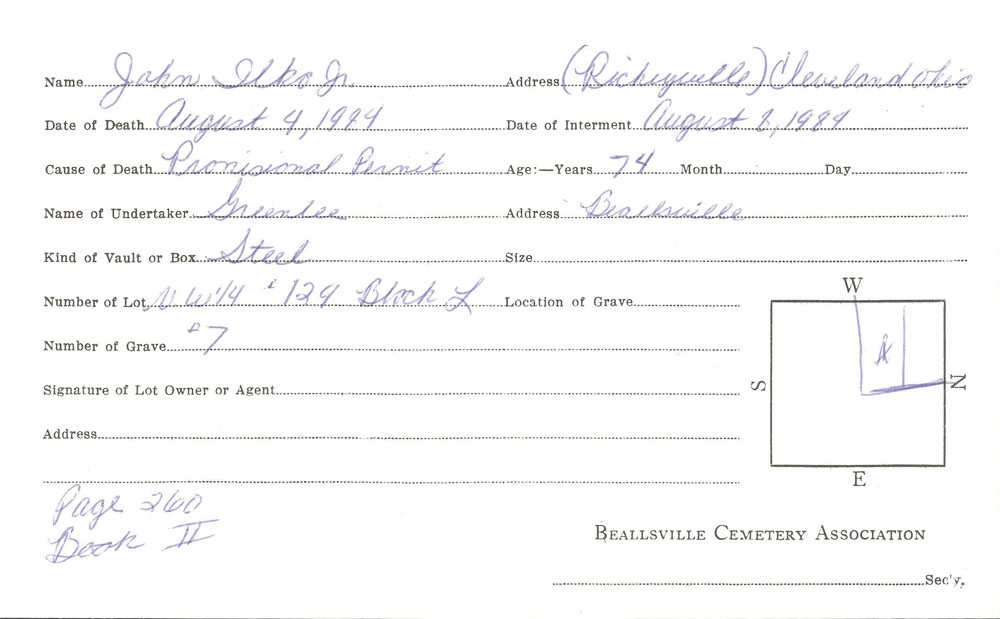 Name John Ilko Jr. Address (Richeyville) Cleveland Ohio
Date of Death August 4, 1984 Date of Interment August 8, 1984
Cause of Death Provisional Permit Age:—Years 74 Month Day
Name of Undertaker Greenlee Address Beallsville
Kind of Vault or Box Steel Size
Number of Lot N W 1/4 # 129 Block L Location of Grave
W
Number of Grave #7
S
N
Signature of Lot Owner or Agent
Address
E
Page 260
Book II
BEALLSVILLE CEMETERY ASSOCIATION
Sec'y.